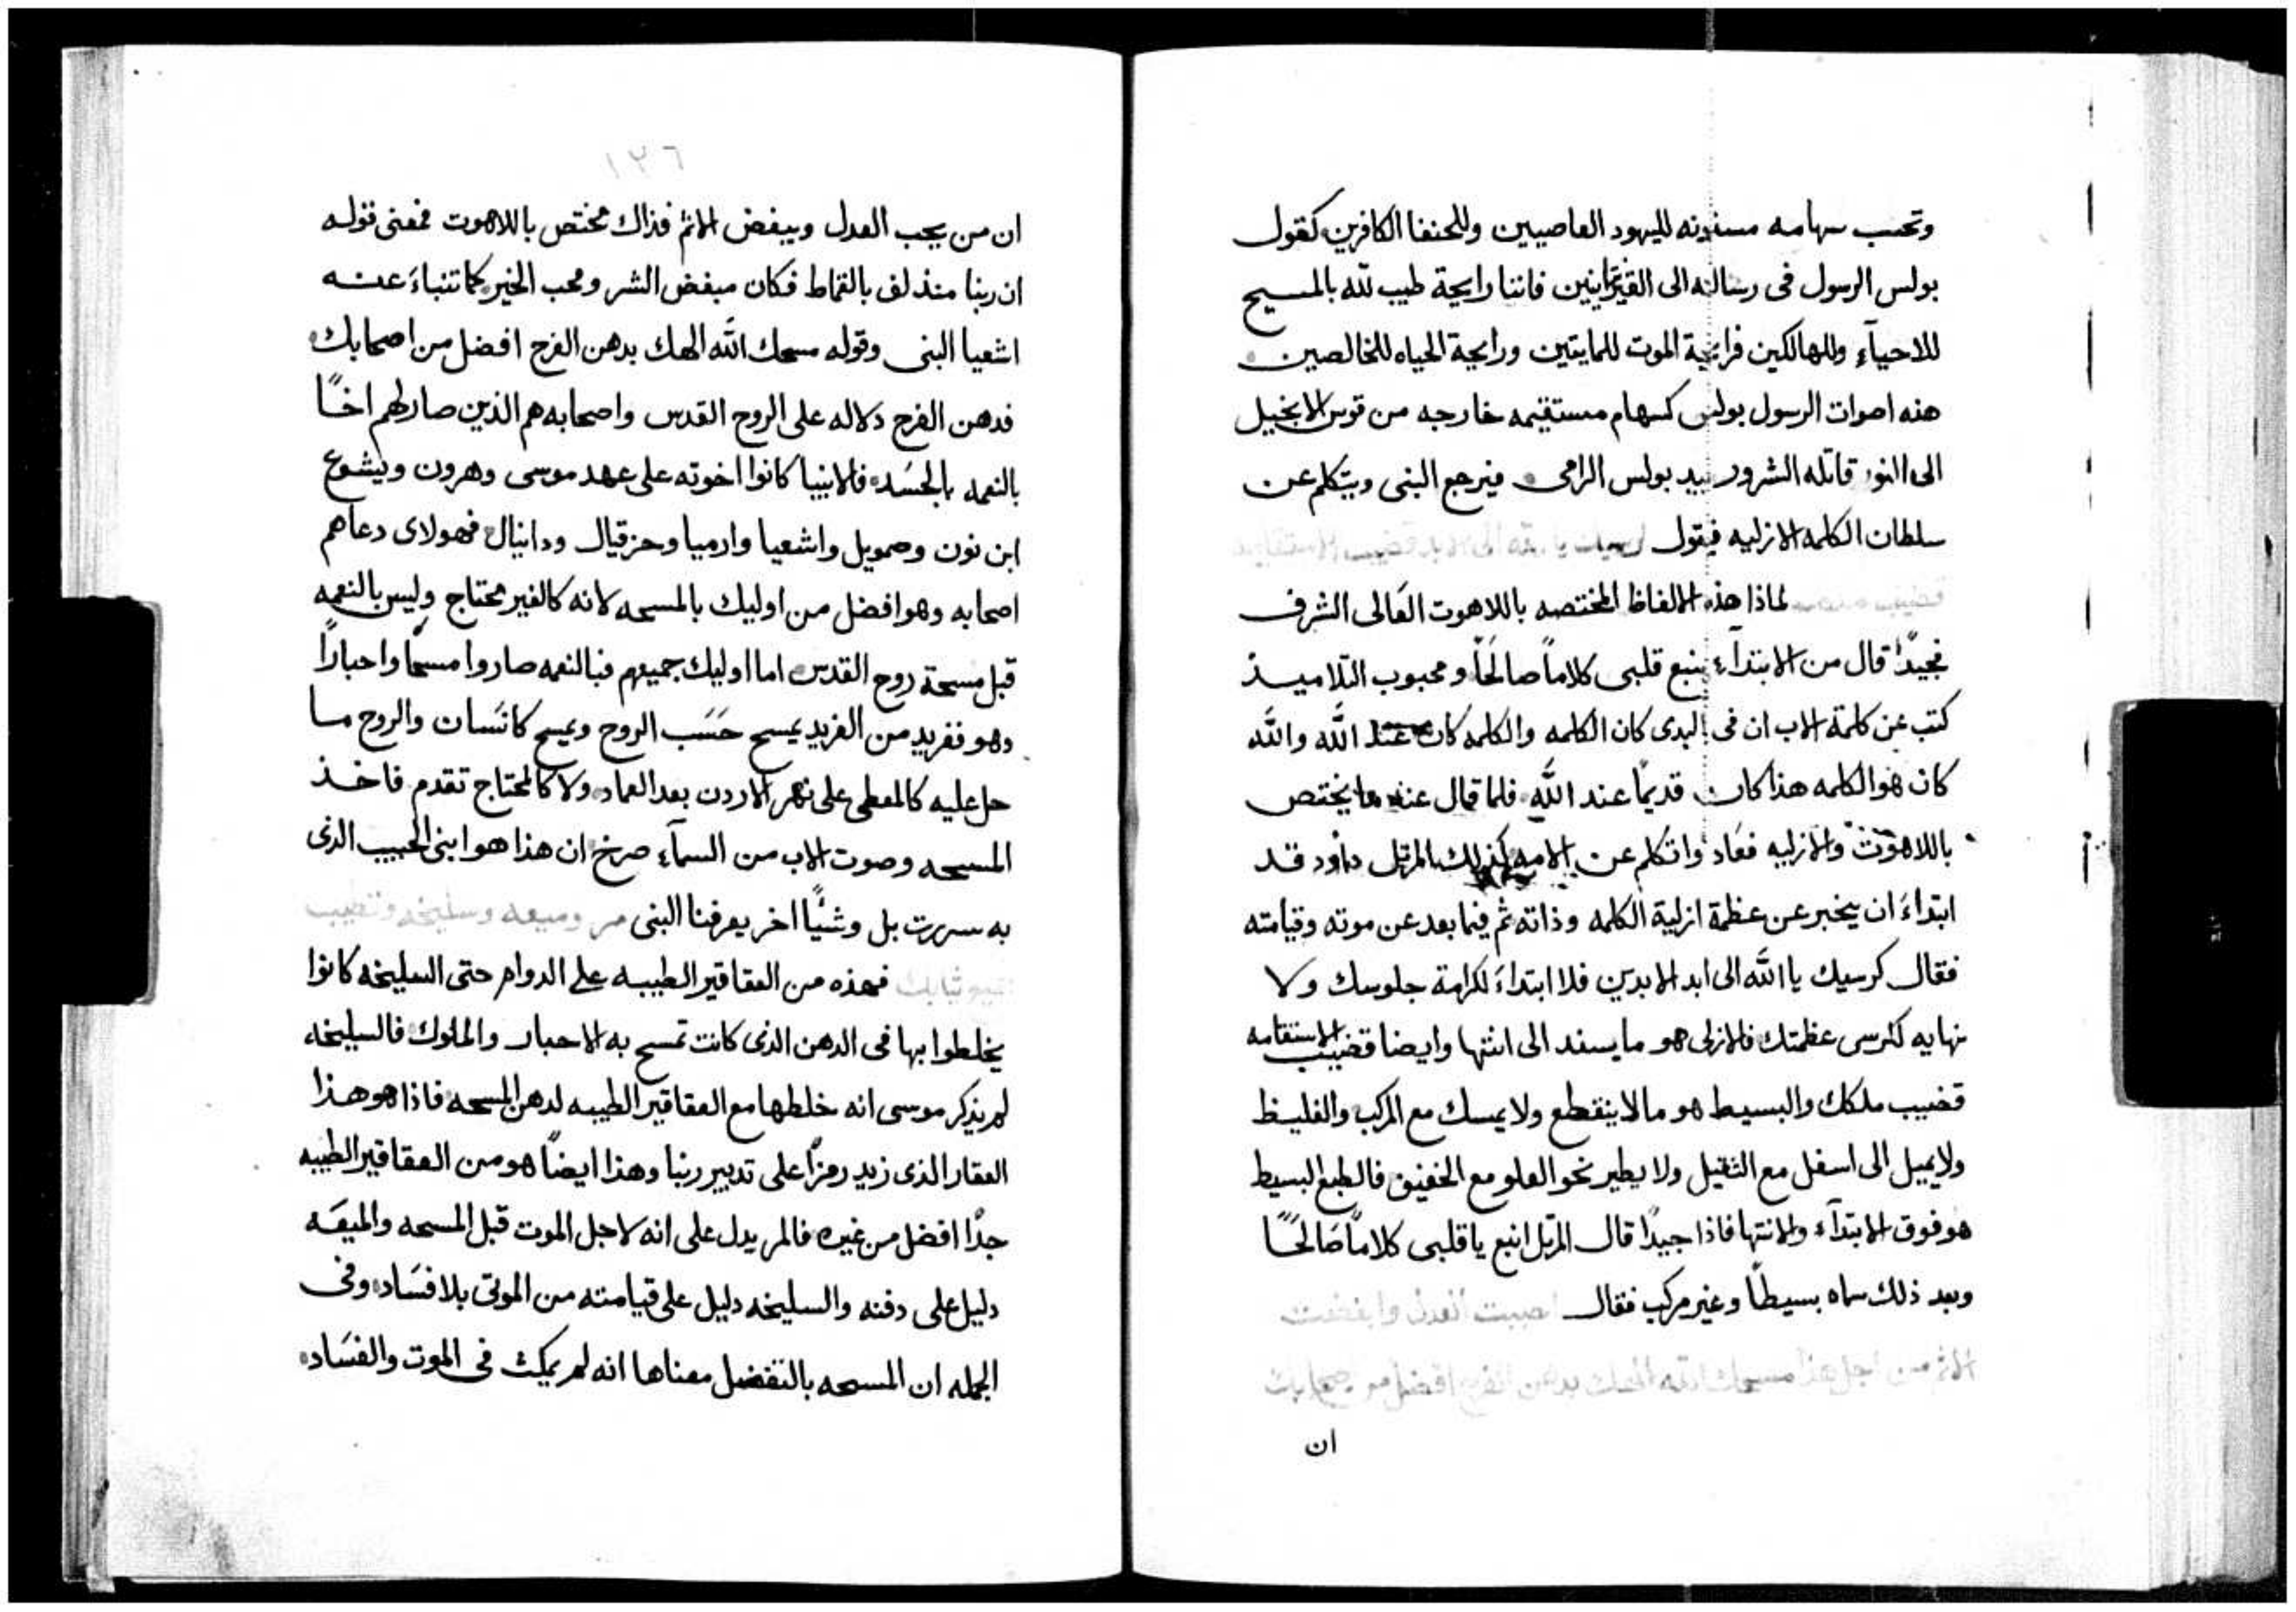 وتحسب سهامه مسنونه لليهود العاصيين وللحنفا الكافرين كقول
بولس الرسول فى رسالته الى القرنتانيين فاننا رايحة طيب لله بالمسيح
للاحيآء وللهالكين فرايحة الموت للمايتين ورايحة الحياه للخالصين
هذه اصوات الرسول بولس كسهام مستقيمه خارجه من قوس الانجيل
الى النور قاتله الشرور بيد بولس الرامى فيرجع النبى ويتكلم عن
سلطان الكلمه الازليه فيقول كرسيك يا الله الى الابد قضيب الاستقامه
قضيب ملكك لماذا هذه الالفاظ المختصه باللاهوت العَالى الشرف
فجيدًا قال من الابتدآء ينبع قلبى كلاماً صالحاً ومحبوب التلاميذ
كتب عن كلمة الاب ان فى البدى كان الكلمه والكلمه كان عند الله والله
كان هوالكلمه هذا كان قديمًا عند الله فلما قال عنه ما يختص
باللاهوت والازليه فعَاد واتكلم عن الامه كذلك المرتل داود قد
ابتداءَ ان يخبر عن عظمة ازلية الكلمه وذاته ثم فيما بعد عن موته وقيامته
فقال كرسيك يا الله الى ابد الابدين فلا ابتداءَ لكرامة جلوسك ولا
نهايه لكرسى عظمتك فالازلى هو ما يسفد الى انتها وايضا قضيب الاستقامه
قضيب ملكك والبسيط هو ما لا ينقطع ولا يمسك مع المركب والغليظ
ولايميل الى اسفل مع الثقيل ولا يطير نحو العلو مع الخفيف فالطبع البسيط
هو فوق الابتدآء والانتها فاذا جيدًا قال المرتل انبع يا قلبى كلاماً صَالحًا
وبعد ذلك سماه بسيطًا وغير مركب فقال احببت العدل وابغضت
الاثم من اجل هذا مسحك الله الهك بدهن الفرح افضل من اصحابك
ان
١٢٦
ان من يحب العدل ويبغض الاثم فذاك مختص باللاهوت فمعنى قوله
ان ربنا منذ لف بالقماط فكان مبغض الشر ومحب الخير كما تنباءَ عنه
اشعيا النبى وقوله مسحك الله الهك بدهن الفرح افضل من اصحابك
فدهن الفرح دلاله على الروح القدس واصحابه هم الذين صار لهم اخًا
بالنعمه بالجسَد فالانبيا كانوا اخوته على عهد موسى وهرون ويشوع
ابن نون وصمويل واشعيا وارميا وحزقيال ودانيال فهولاى دعاهم
اصحابه وهو افضل من اوليك بالمسحه لانه كالغير محتاج وليس بالنعمه
قبل مسحة روح القدس اما اوليك جميعهم فبالنعمه صاروا مسحًا واحبارًا
وهو نفريد من الفريد يمسح حَسَب الروح ويمسح كانسَان والروح مسا
حل عليه كالمعطى على نهر الاردن بعد العماد ولا كالمحتاج تقدم فاخذ
المسحه وصوت الاب من السمآء صرخ ان هذا هو ابنى الحبيب الذى
به سررت بل وشيًّا اخر يعرفنا النبى مر وميعه وسليخه وتطيب
جميع ثيابك فهذه من العقاقير الطيبه على الدوام حتى السليخه كانوا
يخلطوا بها فى الدهن الذى كانت تمسح به الاحبار والملوك فالسليخه
لم يذكر موسى انه خلطها مع العقاقير الطيبه لدهن المسحه فاذا هو هذا
العقار الذى زيد رمزًا على تدبير ربنا وهذا ايضًا هو من العقاقير الطيبه
جدًا افضل من غيره فالمر يدل على انه لاجل الموت قبل المسحه والميعَه
دليل على دفنه والسليخه دليل على قيامته من الموتى بلا فسَاد وفى
الجمله ان المسحه بالتفضيل معناها انه لم يمكث فى الموت والفسَاد